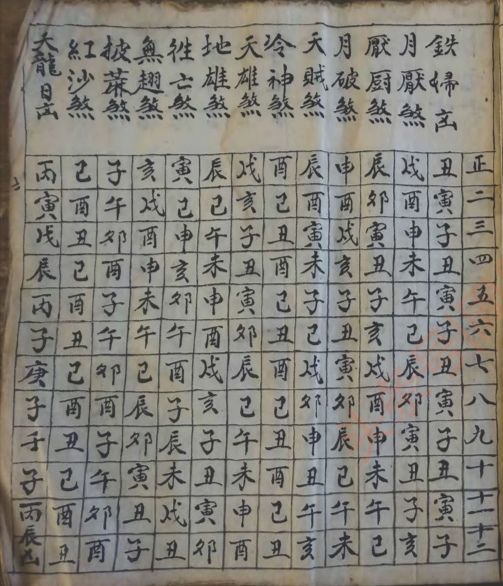 正二三四五六七八九十十一十二
鉄掃凶丑寅子丑寅子丑寅子丑寅子
月厭煞戌酉申未午巳辰卯寅丑子亥
厭厨煞辰卯寅丑子亥戌酉申未午巳
月破煞申酉戌亥子丑寅卯辰巳午未
天賊煞辰酉寅未子巳戌卯申丑午亥
冷神煞酉巳丑酉巳丑酉巳丑酉巳丑
天雄煞戌亥子丑寅卯辰巳午未申酉
地雄煞辰巳午未申酉戌亥子丑寅卯
徃亡煞寅巳申亥卯午酉子辰未戌丑
無翹煞亥戌酉申未午巳辰卯寅丑子
披蔴煞子午卯酉子午卯酉子午卯酉
紅沙煞巳酉丑巳酉丑巳酉丑巳酉丑
天龍日凶丙寅戊辰丙子庚子壬子丙辰凶